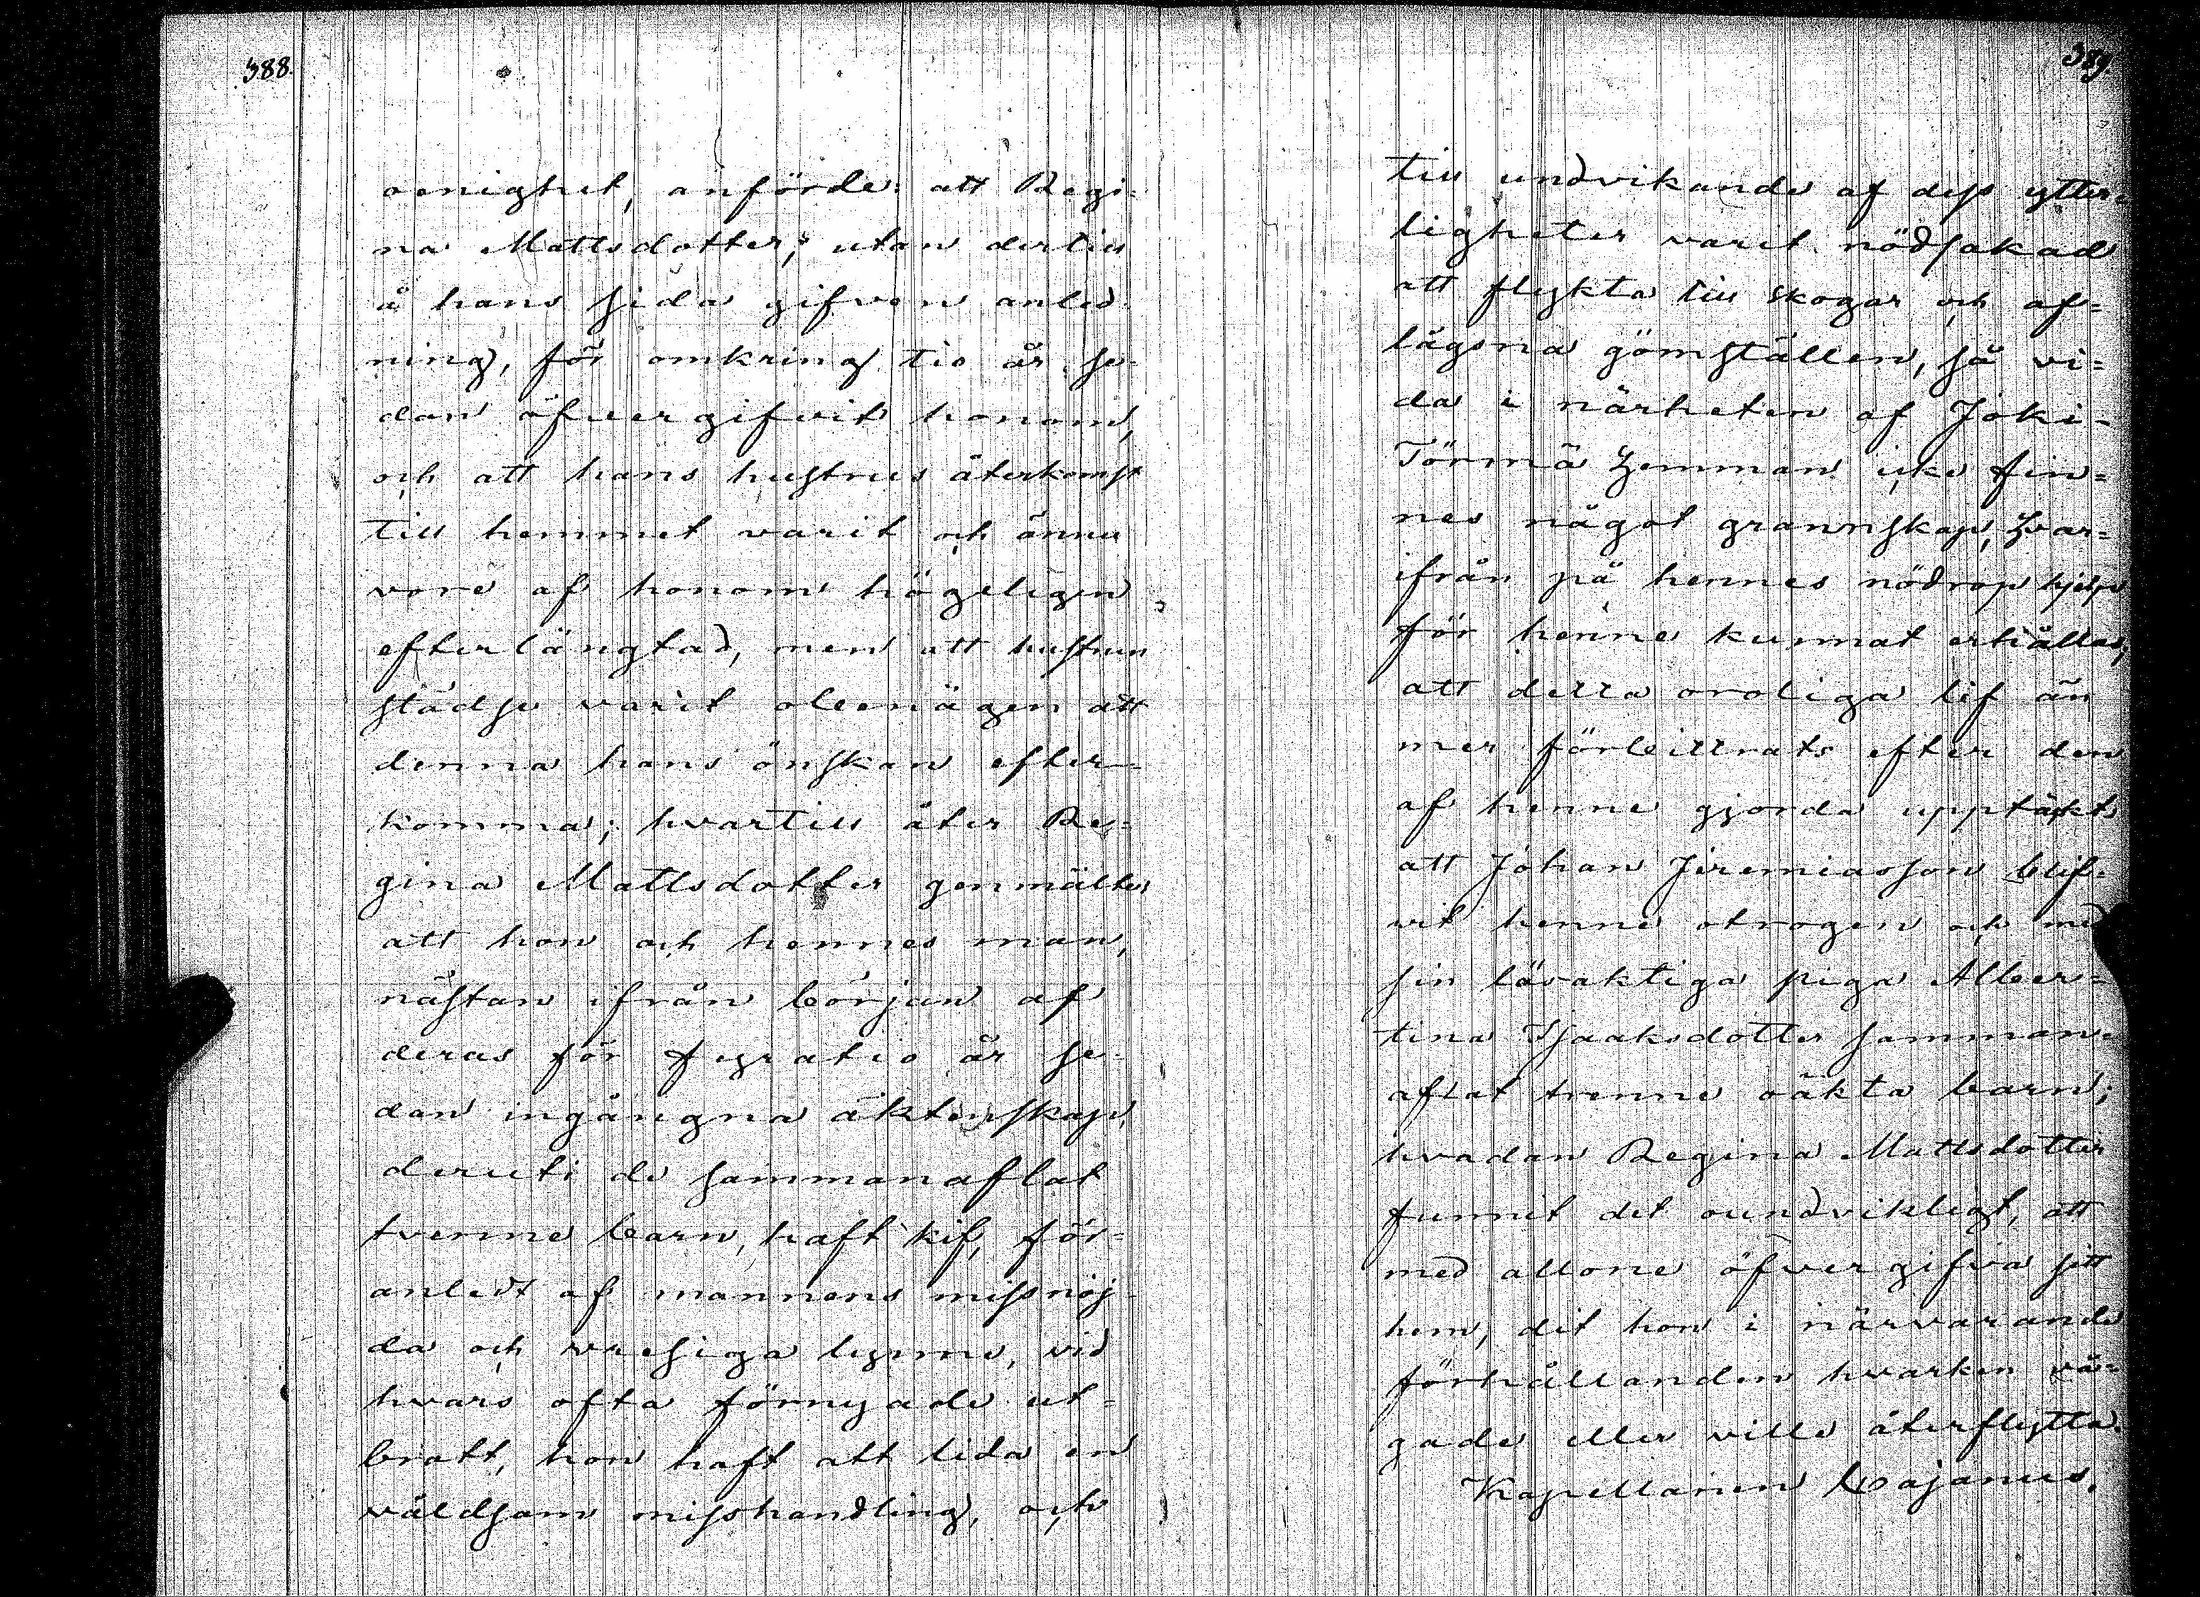 388.
oenighet, anförde: att Regi=
na Mattsdotter, utan dertill
å hans sida gifven anled
ning, för omkring tio år se=
dan öfvergifvit honom,
och att hans hustrus återkomst
till hemmet varit och ännu
vore af honom högeligen
efterlängtad, men att hustrun
städse varit obenägen att
denna hans önskan efter=
komma; hvartill åter Re=
gina Mattsdotter genmälte,
att hon och hennes man,
nästan ifrån början af
deras för fyratio år se=
dan ingångna äktenskap,
deruti de sammanaflat
tvenne barn, haft kif, för=
anledt af mannens missnöj=
da och vresiga lynne, vid
hvars ofta förnyade ut=
brott, hon haft att lida en
våldsam misshandling, och
389.
till undvikande af dess ytter=
ligheter varit nödsakad
att flykta till skogar och af=
lägsna gömställen, så vi=
da i närheten af Joki=
Törmä hemman icke fin=
nes något grannskap, hvar=
ifrån på hennes nödrop hjelp
för henne kunnat erhållas;
att detta oroliga lif än
mer förbittrats efter den
af henne gjorda upptäckt,
att Johan Jeremiasson blif=
vit henne otrogen och med
sin lösaktiga piga Alber=
tina Isaaksdotter samman=
aflat trenne oäkta barn;
hvadan Regina Mattsdotter
funnit det oundvikligt, att
med allone öfvergifva sitt
hem, dit hon i närvarande
förhållanden hvarken vå=
gade eller ville återflytta.
Kapellanen Cajanus.